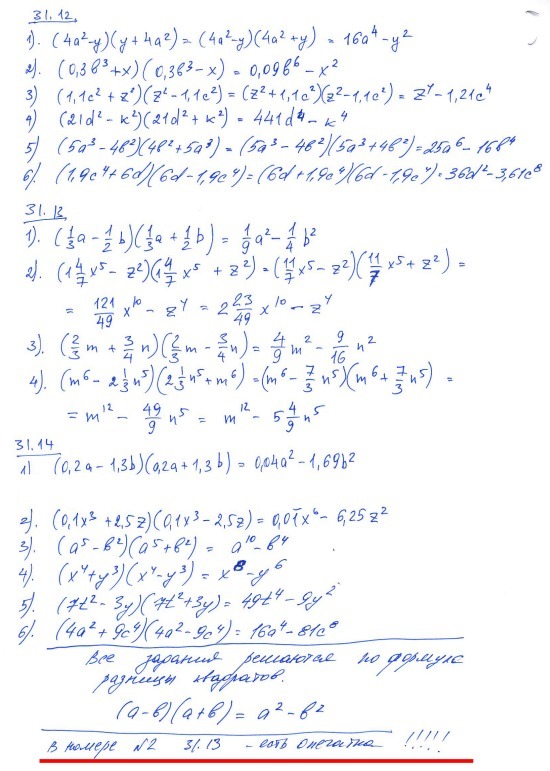 31.12.
1). (4a²-y)(y+4a²) = (4a²-y)(4a²+y) = 16a⁴-y²
2). (0,3b³+x)(0,3b³-x) = 0,09b⁶-x²
3) (1,1c²+z²)(z²-1,1c²) = (z²+1,1c²)(z²-1,1c²) = z⁴-1,21c⁴
4) (21d²-k²)(21d²+k²) = 441d⁴-k⁴
5) (5a³-4b²)(4b²+5a³) = (5a³-4b²)(5a³+4b²) = 25a⁶-16b⁴
6). (1,9c⁴+6d)(6d-1,9c⁴) = (6d+1,9c⁴)(6d-1,9c⁴) = 36d²-3,61c⁸
31.13
1). (1/3 a - 1/2 b)(1/3 a + 1/2 b) = 1/9 a² - 1/4 b²
2). (1 4/7 x⁵ - z²)(1 4/7 x⁵ + z²) = (11/7 x⁵ - z²)(11/7 x⁵ + z²) =
= 121/49 x¹⁰ - z⁴ = 2 23/49 x¹⁰ - z⁴
3). (2/3 m + 3/4 n)(2/3 m - 3/4 n) = 4/9 m² - 9/16 n²
4). (m⁶ - 2 1/3 n⁵)(2 1/3 n⁵ + m⁶) = (m⁶ - 7/3 n⁵)(m⁶ + 7/3 n⁵) =
= m¹² - 49/9 n⁵ = m¹² - 5 4/9 n⁵
31.14
1) (0,2a-1,3b)(0,2a+1,3b) = 0,04a²-1,69b²
2). (0,1x³+2,5z)(0,1x³-2,5z) = 0,01x⁶-6,25z²
3). (a⁵-b²)(a⁵+b²) = a¹⁰-b⁴
4). (x⁴+y³)(x⁴-y³) = x⁸-y⁶
5). (7t²-3y)(7t²+3y) = 49t⁴-9y²
6). (4a²+9c⁴)(4a²-9c⁴) = 16a⁴-81c⁸
Все задания решаются по формуле
разницы квадратов.
(a-b)(a+b) = a²-b²
В номере №2 31.13 - есть опечатка !!!!!